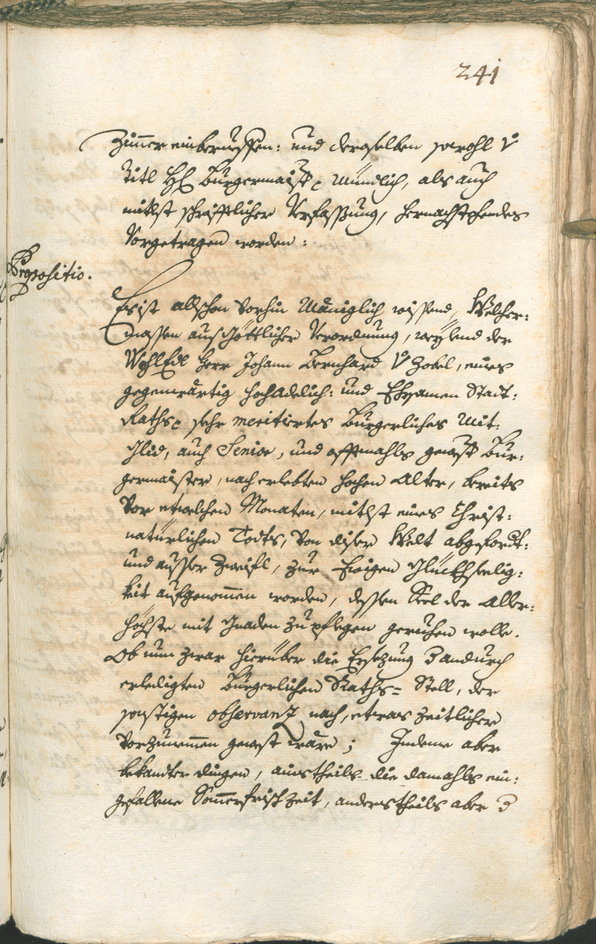 241
Zimer einberueffen: und derselben sowohl v
titl Hℓ: Burgermaister mündlich, als auch
mitlst schrifftlicher Verfassung, hernachstehendes
Vorgetragen worden:
Propositio.
Es ist allschon vorhin Mäniglich wissend, Welcher-
massen aus Göttlicher Verordnung, weylend der
WohlEdl Herr Johann Bernhard v Zobel, eines
gegenwärtig hochadelich: und Ehrsamen Statt-
Raths sehr meritirtes Burgerliches Mit-
Glid, auch Senior, und offtmahls gewest Bur-
germaister, nach erlebten hochen Alter, bereits
vor etwelchen Monaten, mitlst eines Christ-
natürlichen Todts, von diser Welt abgefordt:
und ausser Zweifl, zur Ewigen Glückhseelig-
keit aufgenommen worden, dessen Seel der Aller-
höchste mit Gnaden zu pflegen geruhen wolle.
Ob nun zwar hierüber die Ersezung andurch
erledigten Burgerlichen Raths-Stell, der
sonstigen observanz nach, etwas zeitlicher
vorzunemmen gewest wäre; Indeme aber
bekandter dingen, ainstheils die damahls ein-
gefallene Somerfrischzeit, anderstheils aber